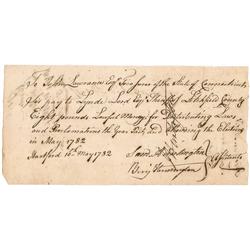 To John Lawrence Esqr Treasurer of the State of Connecticut
Sir pay to Lynde Lord Esqr Sheriff of Litchfield County
Eight pounds Lawful Money for Distributing Laws
and Proclamations the Year Past, and Attending the Election
in May 1782
Hartford 16th May 1782
Saml Huntington
Benj Huntington
Assistants